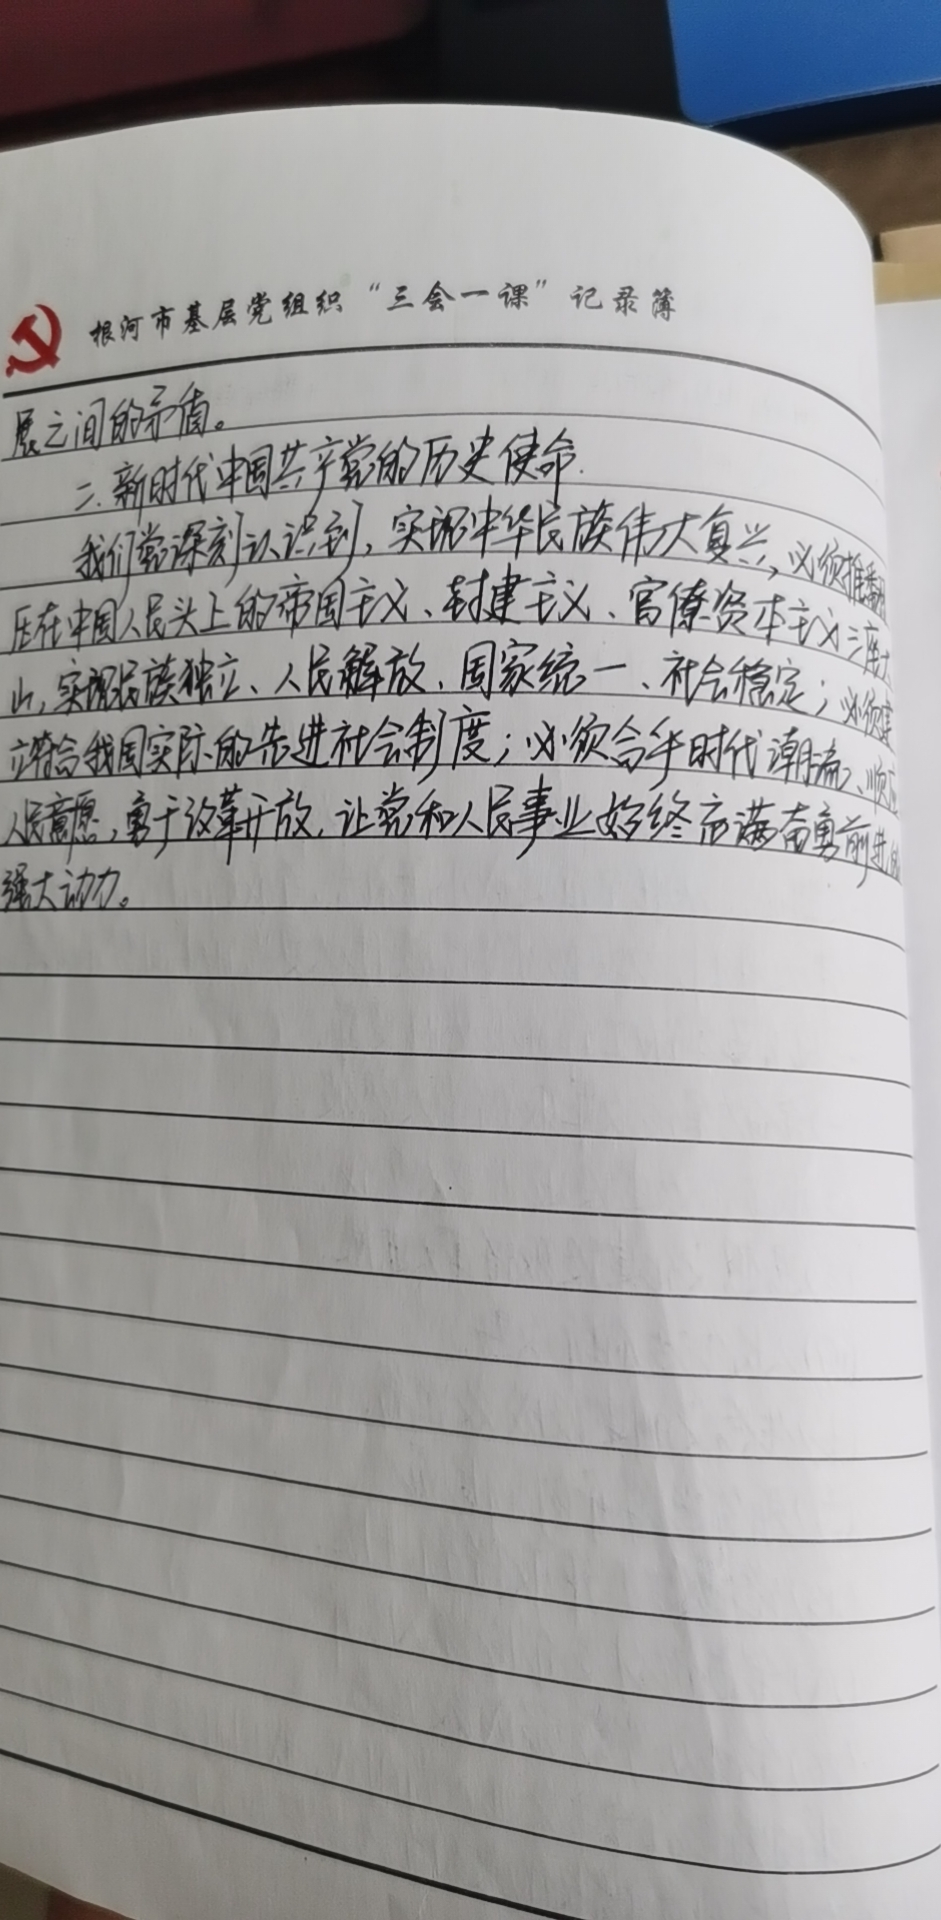 根河市基层党组织“三会一课”记录簿
展之间的矛盾。
二.新时代中国共产党的历史使命.
我们党深刻认识到,实现中华民族伟大复兴,必须推翻
压在中国人民头上的帝国主义、封建主义、官僚资本主义三座大
山,实现民族独立、人民解放、国家统一、社会稳定;必须建
立符合我国实际的先进社会制度;必须合乎时代潮流、顺应
人民意愿,勇于改革开放,让党和人民事业始终充满奋勇前进的
强大动力。